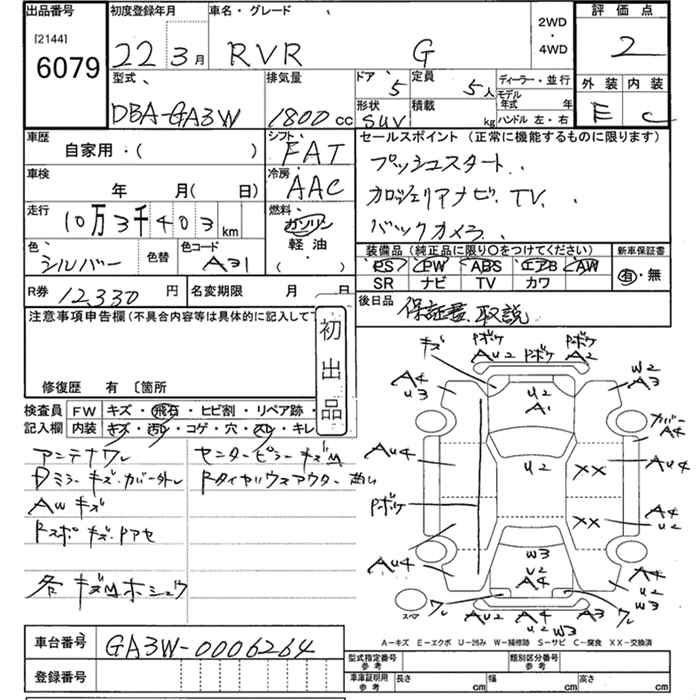 出品番号
[2144]
6079
初度登録年月
22 3月
車名・グレード
RVR G
2WD
・
4WD
評価点
2
外装 内装
E C
型式
DBA-GA3W
排気量
1800 cc
ドア 5
定員 5人
形状 SUV
積載 kg
ディーラー・並行
モデル年式 年
ハンドル 左・右
車歴
自家用・( )
シフト
FAT
セールスポイント (正常に機能するものに限ります)
プッシュスタート、
カロッツェリアナビ、TV、
バックカメラ、
車検
年 月( 日)
冷房
AAC
走行
10万3千403km
燃料
ガソリン
軽油
( )
色
シルバー
色替
色コード
A31
装備品 (純正品に限り○をつけてください)
PS PW ABS エアB AW
SR ナビ TV カワ
新車保証書
有・無
R券 12,330 円
名変期限 月 日
後日品
保証書、取説
注意事項申告欄(不具合内容等は具体的に記入して
初出品
修復歴 有 〔箇所
検査員記入欄
FW キズ・飛石・ヒビ割・リペア跡・
内装 キズ・汚れ・コゲ・穴・スレ・キレ
アンテナワレ
Dミラーキズ・カバー外レ
AWキズ
センターピラーキズM
各キズMホシュウ
キズ
Pボケ
AU2
Pボケ
Pボケ
A2
A4
U3
U2
A1
W2
A3
カバー
A4
AU4
U2
XX
AU4
Pボケ
XX
A4
U2
AU4
W3
U2
A4
A4
U2
W3
スペア
ワレ
AU2
A4
U2
W3
A2
ワレ
A-キズ E-エクボ U-凹み W-補修跡 S-サビ C-腐食 XX-交換済
車台番号
GA3W-0006264
登録番号
型式指定番号
参考
類別区分番号
参考
車庫証明用
参考
長さ cm
幅 cm
高さ cm